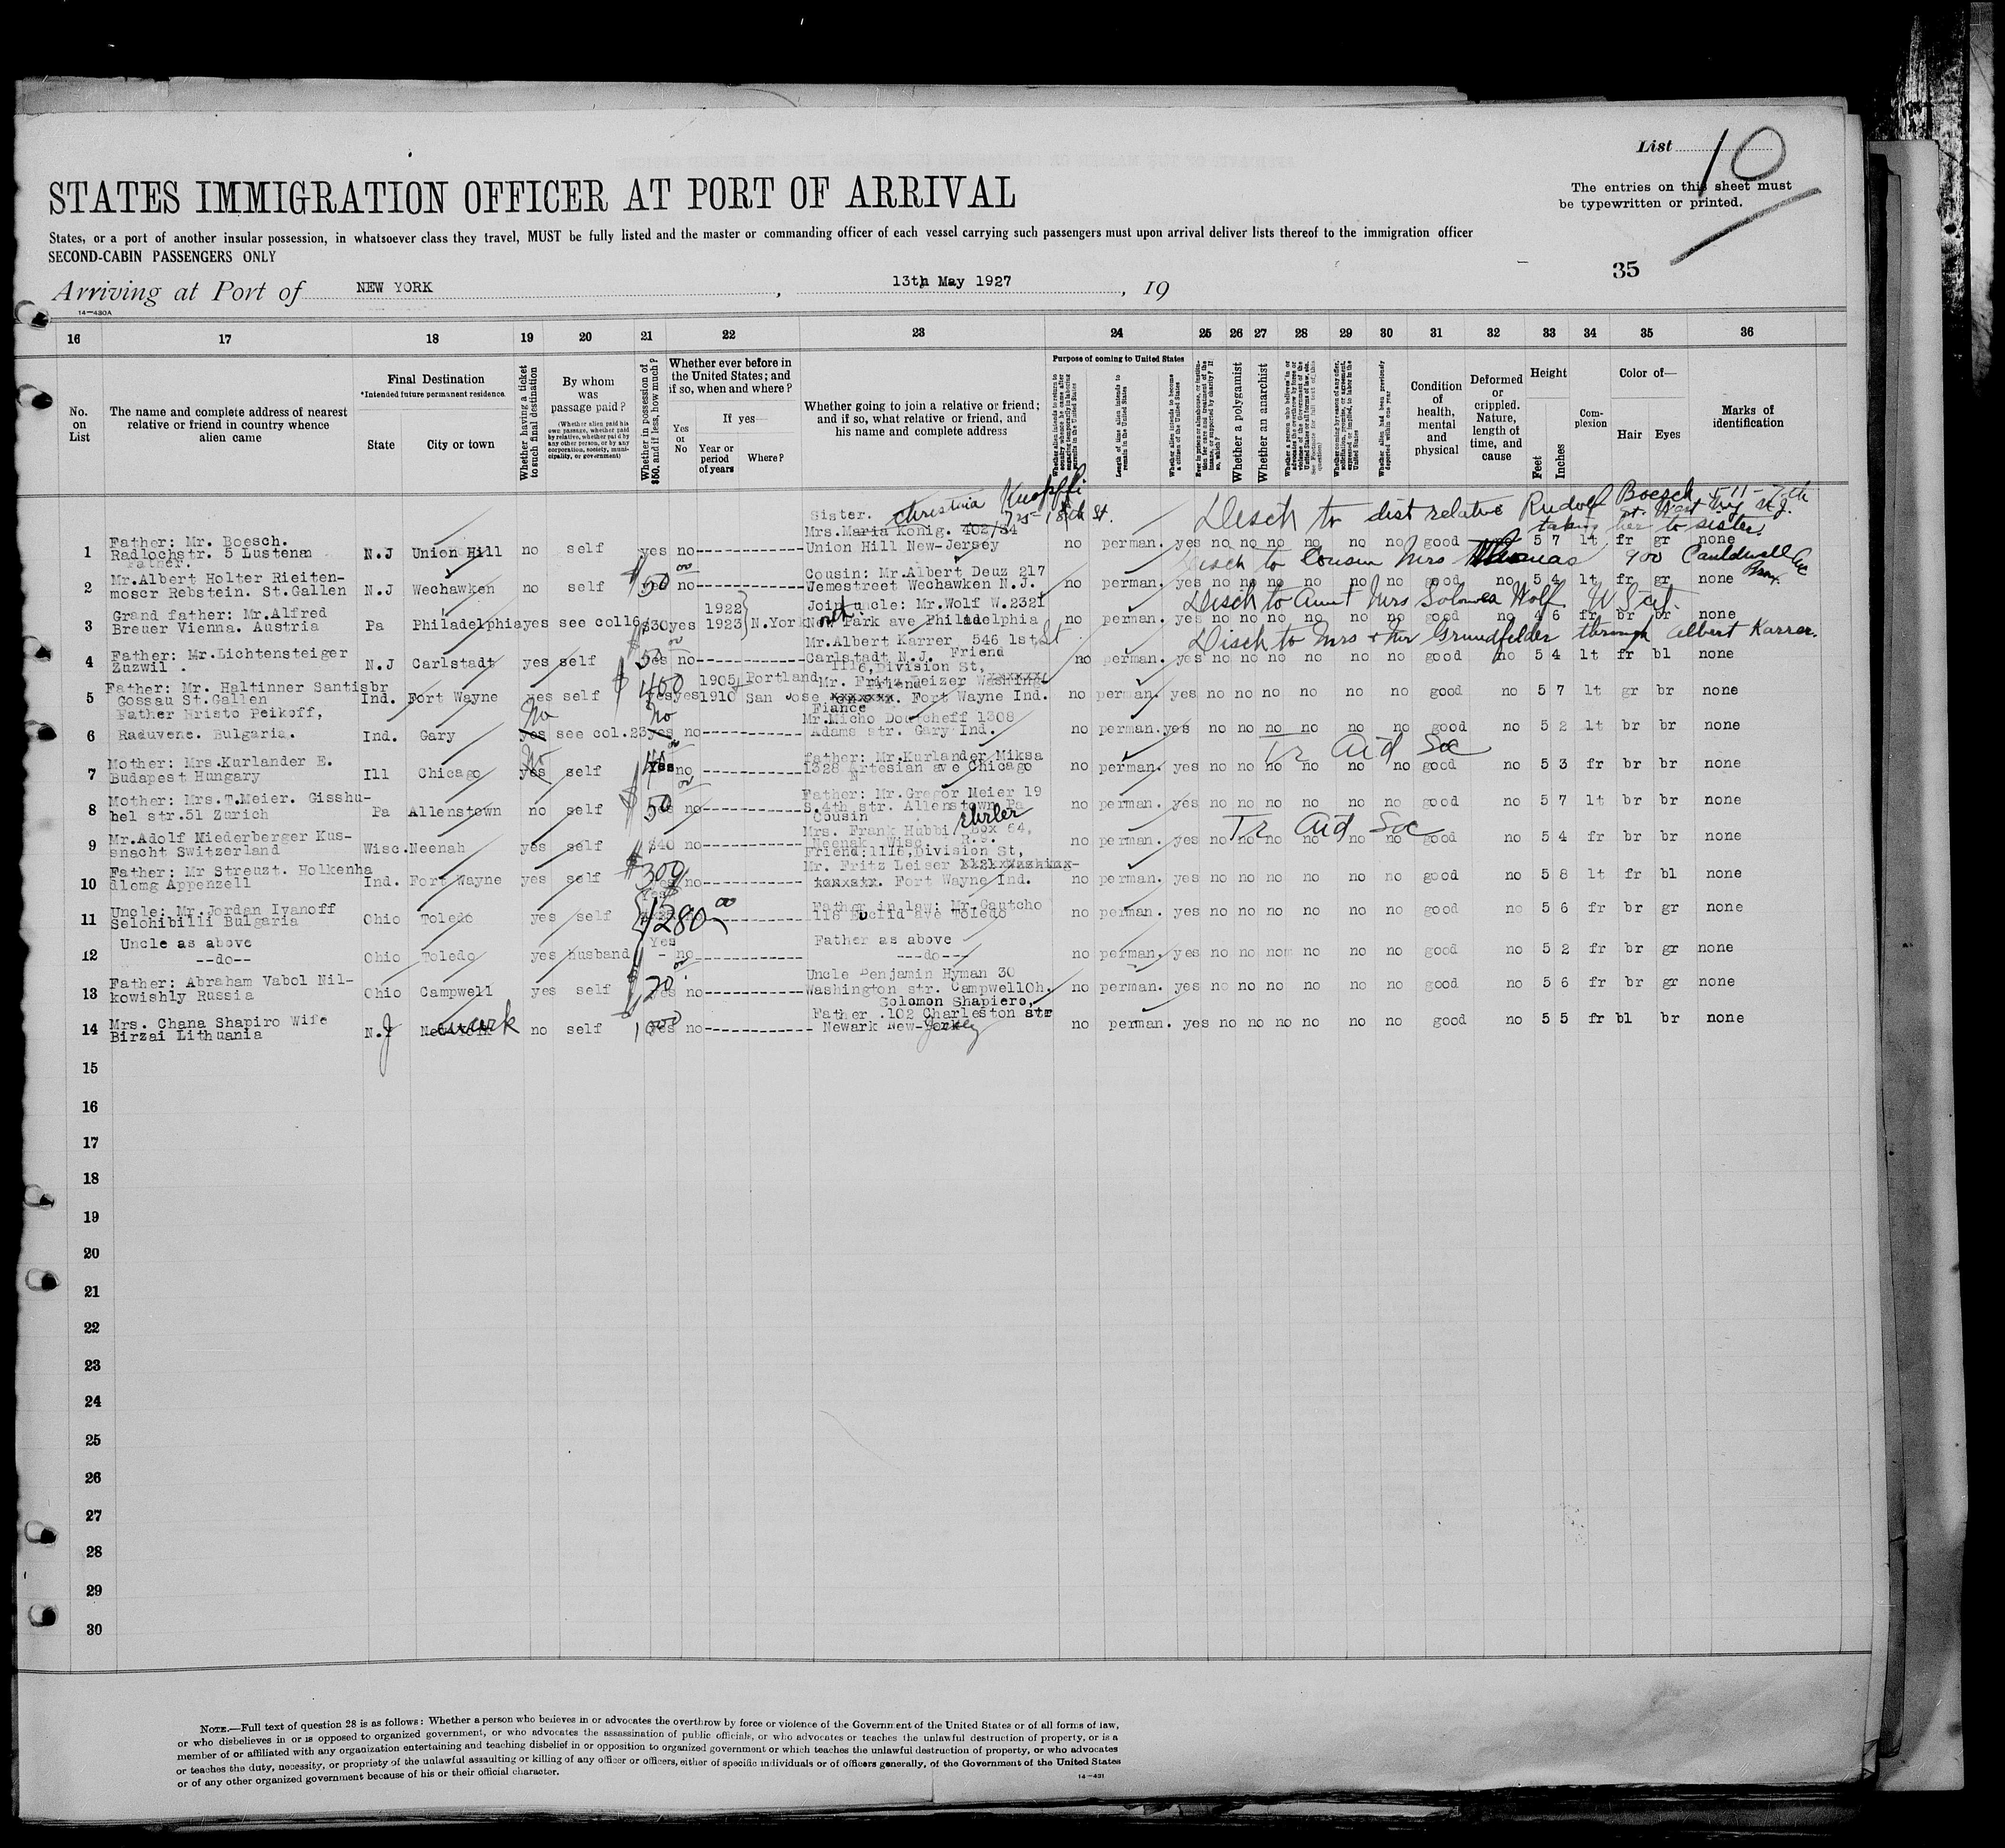 List 10
The entries on this sheet must
be typewritten or printed.
STATES IMMIGRATION OFFICER AT PORT OF ARRIVAL
States, or a port of another insular possession, in whatsoever class they travel, MUST be fully listed and the master or commanding officer of each vessel carrying such passengers must upon arrival deliver lists thereof to the immigration officer
SECOND-CABIN PASSENGERS ONLY
35
Arriving at Port of NEW YORK, 13th May 1927, 19
14—430A
16 17 18 19 20 21 22 23 24 25 26 27 28 29 30 31 32 33 34 35 36
No. on List
The name and complete address of nearest relative or friend in country whence alien came
Final Destination
*Intended future permanent residence.
State
City or town
Whether having a ticket to such final destination
By whom was passage paid?
(Whether alien paid his own passage, whether paid by relative, whether paid by any other person, or by any corporation, society, municipality, or government)
Whether in possession of $50, and if less, how much?
Whether ever before in the United States; and if so, when and where?
Yes or No
If yes—
Year or period of years
Where?
Whether going to join a relative or friend; and if so, what relative or friend, and his name and complete address
Purpose of coming to United States
Length of time alien intends to remain in the United States
Whether alien intends to become a citizen of the United States
Whether a polygamist
Whether an anarchist
Condition of health, mental and physical
Deformed or crippled. Nature, length of time, and cause
Height
Feet
Inches
Complexion
Color of—
Hair
Eyes
Marks of identification
Sister. Christina Knopfli
725-18th St.
Disch to dist relative Rudolf Boesch 511-7th
St. West N.Y. N.J.
taking her to sister
Mrs. Maria Konig. 402/34
1 Father: Mr. Boesch.
Radlochstr. 5 Lustenau N.J Union Hill no self yes no Union Hill New-Jersey no perman. yes no no no no no no good no 5 7 lt fr gr none
Disch to Cousin Mrs Thomas 900 Cauldwell Ave Bronx.
Father.
2 Mr.Albert Holter Rieiten-
moser Rebstein. St.Gallen N.J Wechawken no self $50 no Cousin: Mr.Albert Deuz 217
Jemestreet Wechawken N.J. no perman. yes no no no no no no good no 5 4 lt fr gr none
Disch to Aunt Mrs Wolf
3 Grand father: Mr.Alfred
Breuer Vienna. Austria Pa Philadelphia yes see col16 $30 yes 1922
1923 N.York Join uncle: Mr.Wolf W.2321
Park ave Philadelphia no perman. yes no no no no no no good no 4 6 fr br br none
Disch to Mrs + Mr Grundfelder through Albert Karrer.
4 Father: Mr.Lichtensteiger
Znzwil . N.J Carlstadt yes self $50 no Mr.Albert Karrer, 546 1st St
Carlstadt N.J. Friend no perman. yes no no no no no no good no 5 4 lt fr bl none
1116,Division St,
5 Father: Mr. Haltinner Santisbr
Gossau St.Gallen Ind. Fort Wayne yes self $400 yes 1905 Portland
1910 San Jose Mr. Fritz Leizer
Friend
Fort Wayne Ind. no perman. yes no no no no no no good no 5 7 lt gr br none
Fiance
6 Father Hristo Peikoff,
Raduvene. Bulgaria. Ind. Gary No see col.23 No no Mr.Micho Doutcheff 1308
Adams str. Gary Ind. no perman. yes no no no no no no good no 5 2 lt br br none
Tr Aid Soc
7 Mother: Mrs.Kurlander E.
Budapest Hungary Ill Chicago No self no Father: Mr.Kurlander Miksa
1328 N Artesian ave Chicago no perman. yes no no no no no no good no 5 3 fr br br none
8 Mother: Mrs.T.Meier. Gisshu-
hel str.51 Zurich Pa Allenstown no self $50 no Father: Mr.Gregor Meier 19
S.4th str. Allenstown Pa no perman. yes no no no no no no good no 5 7 lt br br none
Cousin
Tr Aid Soc
9 Mr.Adolf Niederberger Kus-
snacht Switzerland Wisc. Neenah yes self $40 no Mrs. Frank Hubbi Box 64,
Neenak Wisc. R.9. no perman. yes no no no no no no good no 5 4 fr br br none
Friend;1116,Division St,
10 Father: Mr Streuzt. Holkenha
dlemg Appenzell Ind. Fort Wayne yes self $300 no Mr. Fritz Leiser
Fort Wayne Ind. no perman. yes no no no no no no good no 5 8 lt fr bl none
11 Uncle: Mr.Jordan Ivanoff
Selohibilli Bulgaria Ohio Toledo yes self Yes $280 00 Father in law: Mr.Gautcho
118 Euclid ave Toledo no perman. yes no no no no no no good no 5 6 fr br gr none
12 Uncle as above
--do-- Ohio Toledo yes husband Yes no Father as above
---do--- no perman. yes no no no no no no good no 5 2 fr br gr none
13 Father: Abraham Vabol Nil-
kowishly Russia Ohio Campwell yes self $20 no Uncle Benjamin Hyman 30
Washington str. CampwellOh. no perman. yes no no no no no no good no 5 6 fr br gr none
Solomon Shapiero,
14 Mrs. Chana Shapiro Wife
Birzai Lithuania N.J Newark no self no Father .102 Charleston str
Newark New-Jersey no perman. yes no no no no no no good no 5 5 fr bl br none
15
16
17
18
19
20
21
22
23
24
25
26
27
28
29
30
NOTE.—Full text of question 28 is as follows: Whether a person who believes in or advocates the overthrow by force or violence of the Government of the United States or of all forms of law,
or who disbelieves in or is opposed to organized government, or who advocates the assassination of public officials, or who advocates or teaches the unlawful destruction of property, or is a
member of or affiliated with any organization entertaining and teaching disbelief in or opposition to organized government or which teaches the unlawful destruction of property, or who advocates
or teaches the duty, necessity, or propriety of the unlawful assaulting or killing of any officer or officers, either of specific individuals or of officers generally, of the Government of the United States
or of any other organized government because of his or their official character.
14—431